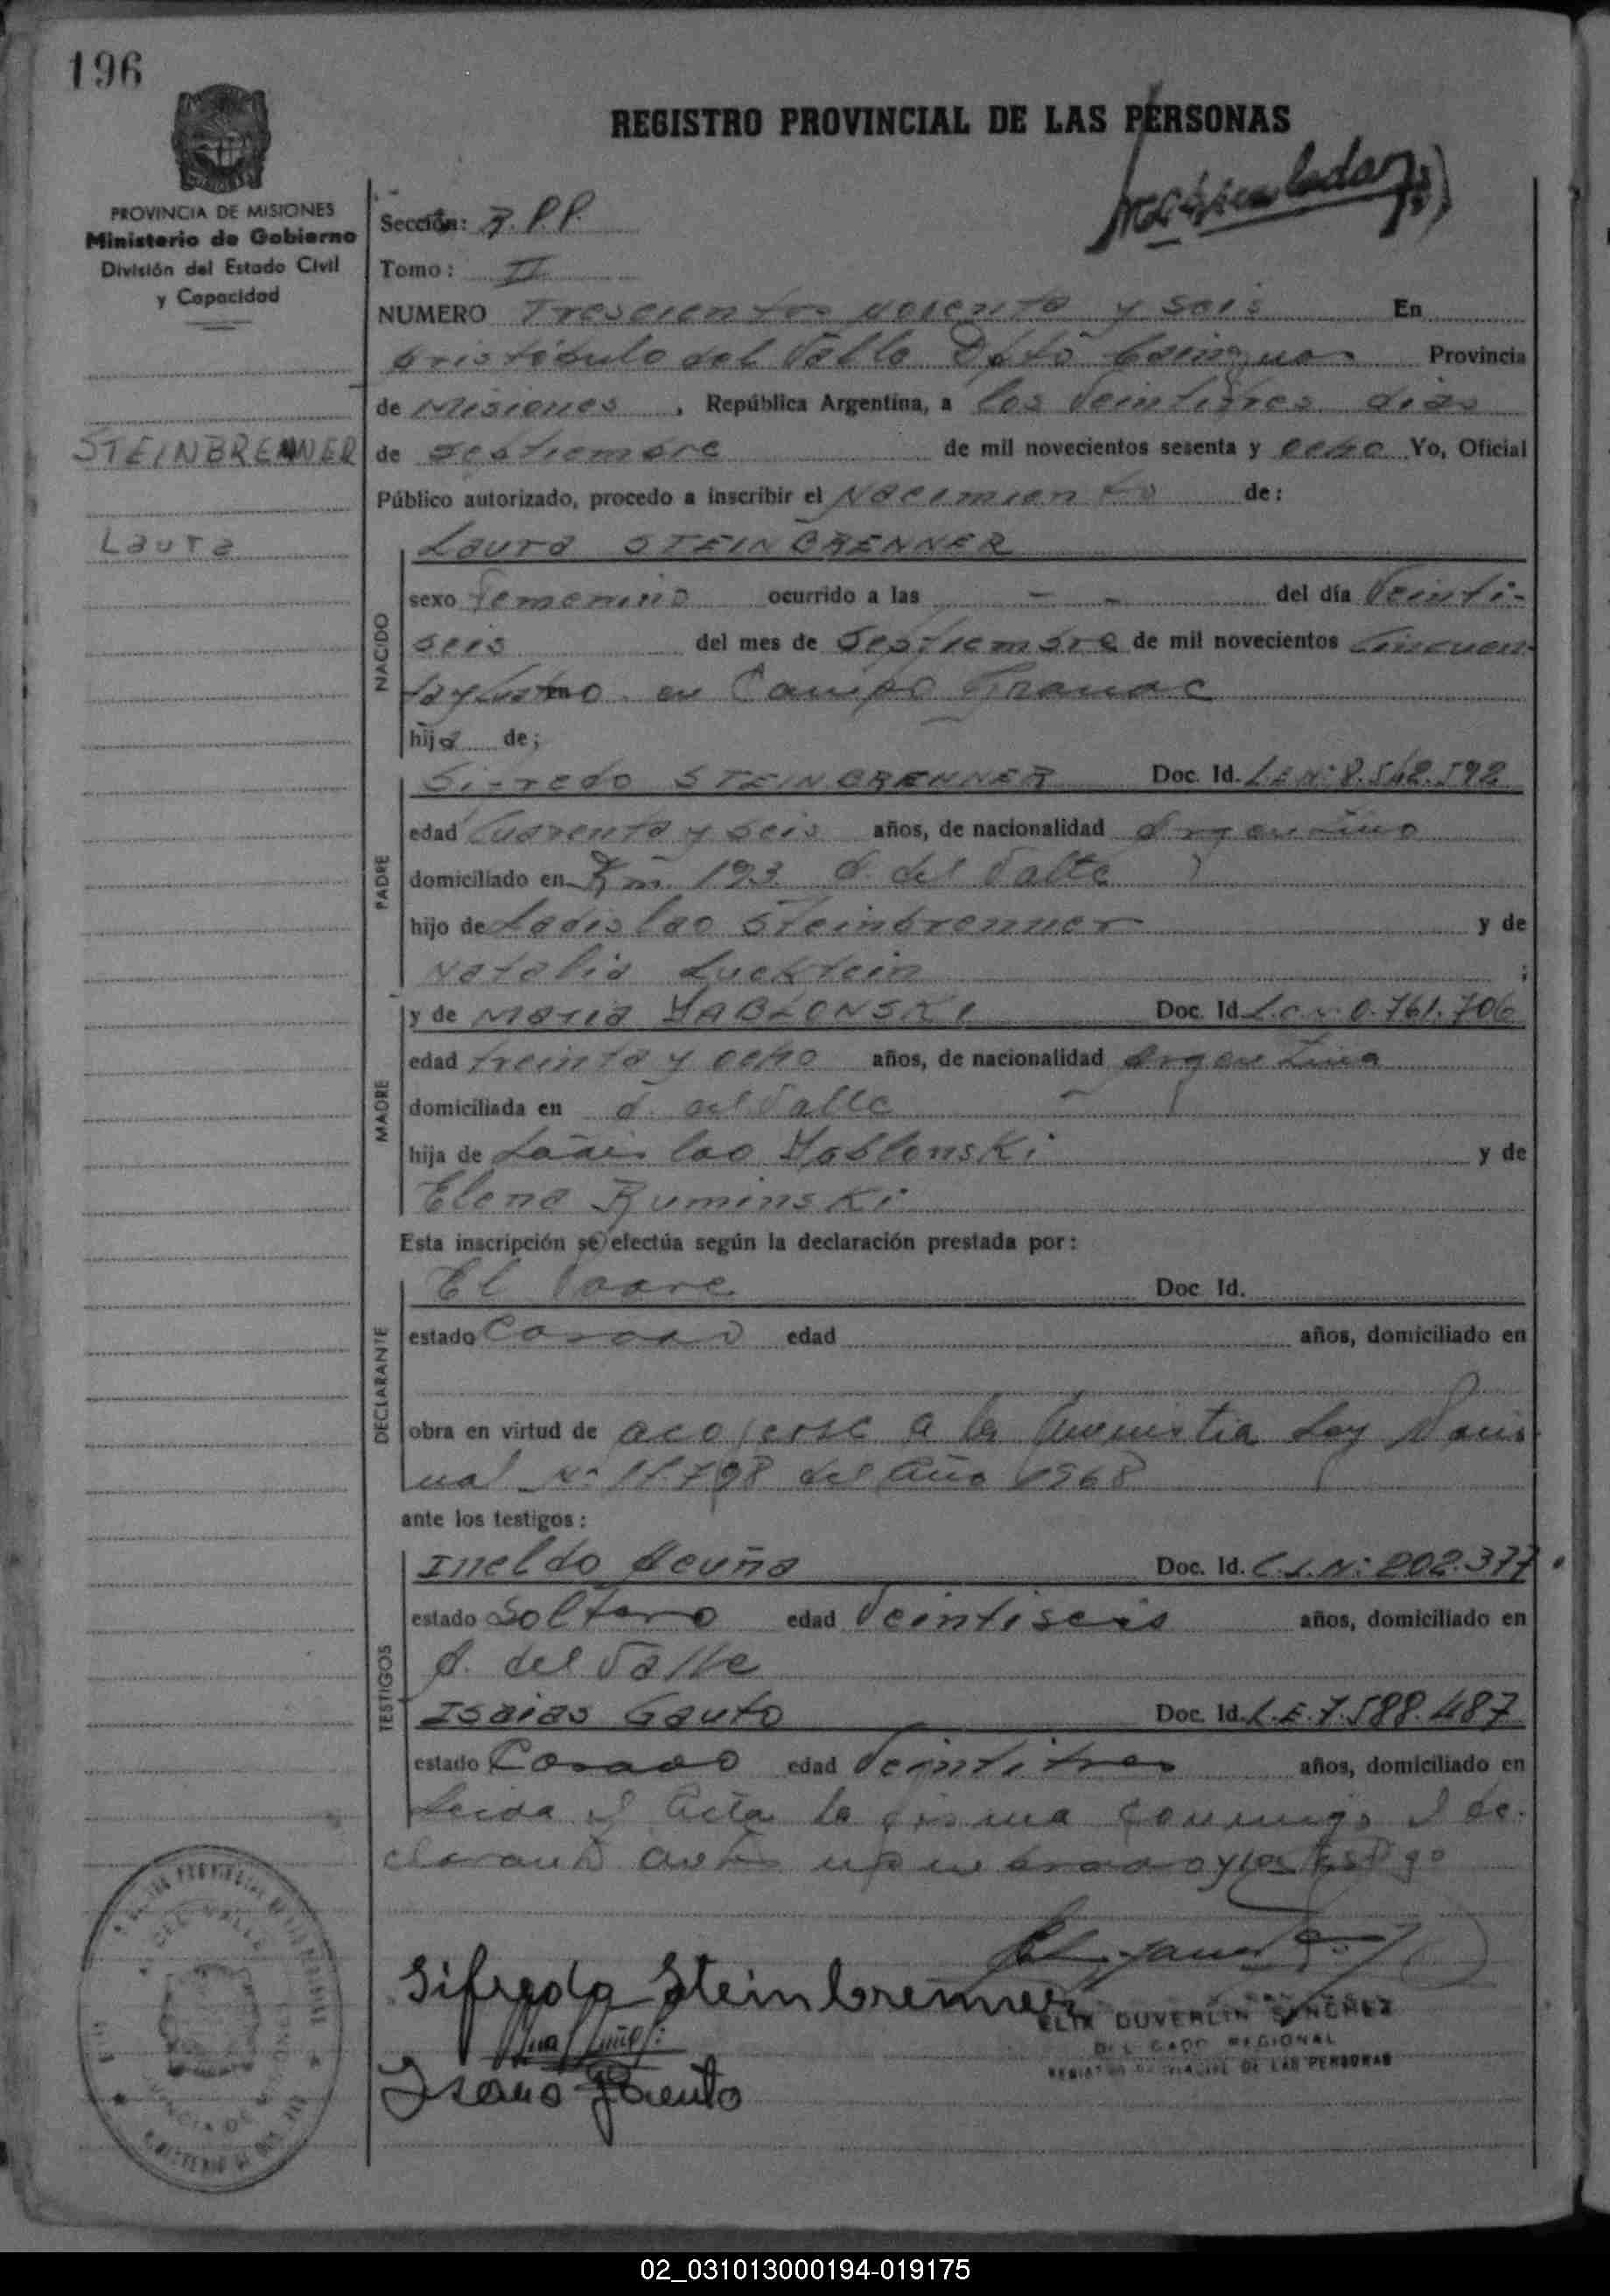 196
REGISTRO PROVINCIAL DE LAS PERSONAS
PROVINCIA DE MISIONES
Ministerio de Gobierno
División del Estado Civil
y Capacidad
Sección: R.P.P.
Tomo: II
NUMERO Trescientos noventa y seis En
Aristóbulo del Valle Dpto Cainguas Provincia
de Misiones, República Argentina, a los veintitres dias
STEINBRENNER
de septiembre de mil novecientos sesenta y ocho Yo, Oficial
Público autorizado, procedo a inscribir el Nacimiento de:
Laura
Laura STEINBRENNER
NACIDO
sexo femenino ocurrido a las - - del día Veinti-
seis del mes de Septiembre de mil novecientos Cincuen-
en Campo Grande
hija de;
PADRE
Sifredo STEINBRENNER Doc. Id. L.E.Nº 8.542.592
edad Cuarenta y seis años, de nacionalidad Argentino
domiciliado en Km. 193 A. del Valle
hijo de Ladislao Steinbrenner y de
Natalia Lucktein ;
MADRE
y de Maria YABLONSKI Doc. Id. L.C.N. 0.761.706
edad treinta y ocho años, de nacionalidad Argentina
domiciliada en A. del Valle
hija de Ladislao Yablonski y de
Elena Ruminski
Esta inscripción se efectúa según la declaración prestada por:
DECLARANTE
El Padre Doc. Id.
estado Casado edad años, domiciliado en
obra en virtud de acojerse a la Amnistia Ley Nacio
nal Nº 17.798 del Año 1968
ante los testigos:
TESTIGOS
Ineldo Acuña Doc. Id. C.I.Nº 202.377
estado Soltero edad Veintiseis años, domiciliado en
A. del Valle
Isaias Gauto Doc. Id. L.E. 7.588.487
estado Casado edad Veintitres años, domiciliado en
Leida el Acta la firma conmigo el de-
clarante antes nombrado y los testigo
Sifredo Steinbrenner
DUVERLIN SANCHEZ
REGIONAL
DE LAS PERSONAS
02_031013000194-019175